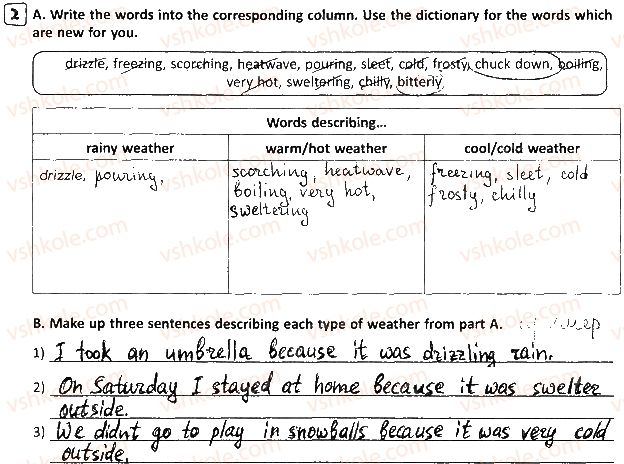 2 A. Write the words into the corresponding column. Use the dictionary for the words which
are new for you.
drizzle, freezing, scorching, heatwave, pouring, sleet, cold, frosty, chuck down, boiling,
very hot, sweltering, chilly, bitterly.
Words describing...
rainy weather warm/hot weather cool/cold weather
drizzle, pouring,
scorching, heatwave,
boiling, very hot,
sweltering
freezing, sleet, cold
frosty, chilly
B. Make up three sentences describing each type of weather from part A.
1) I took an umbrella because it was drizzling rain.
2) On Saturday I stayed at home because it was swelter
outside.
3) We didnt go to play in snowballs because it was very cold
outside.
vshkole.com